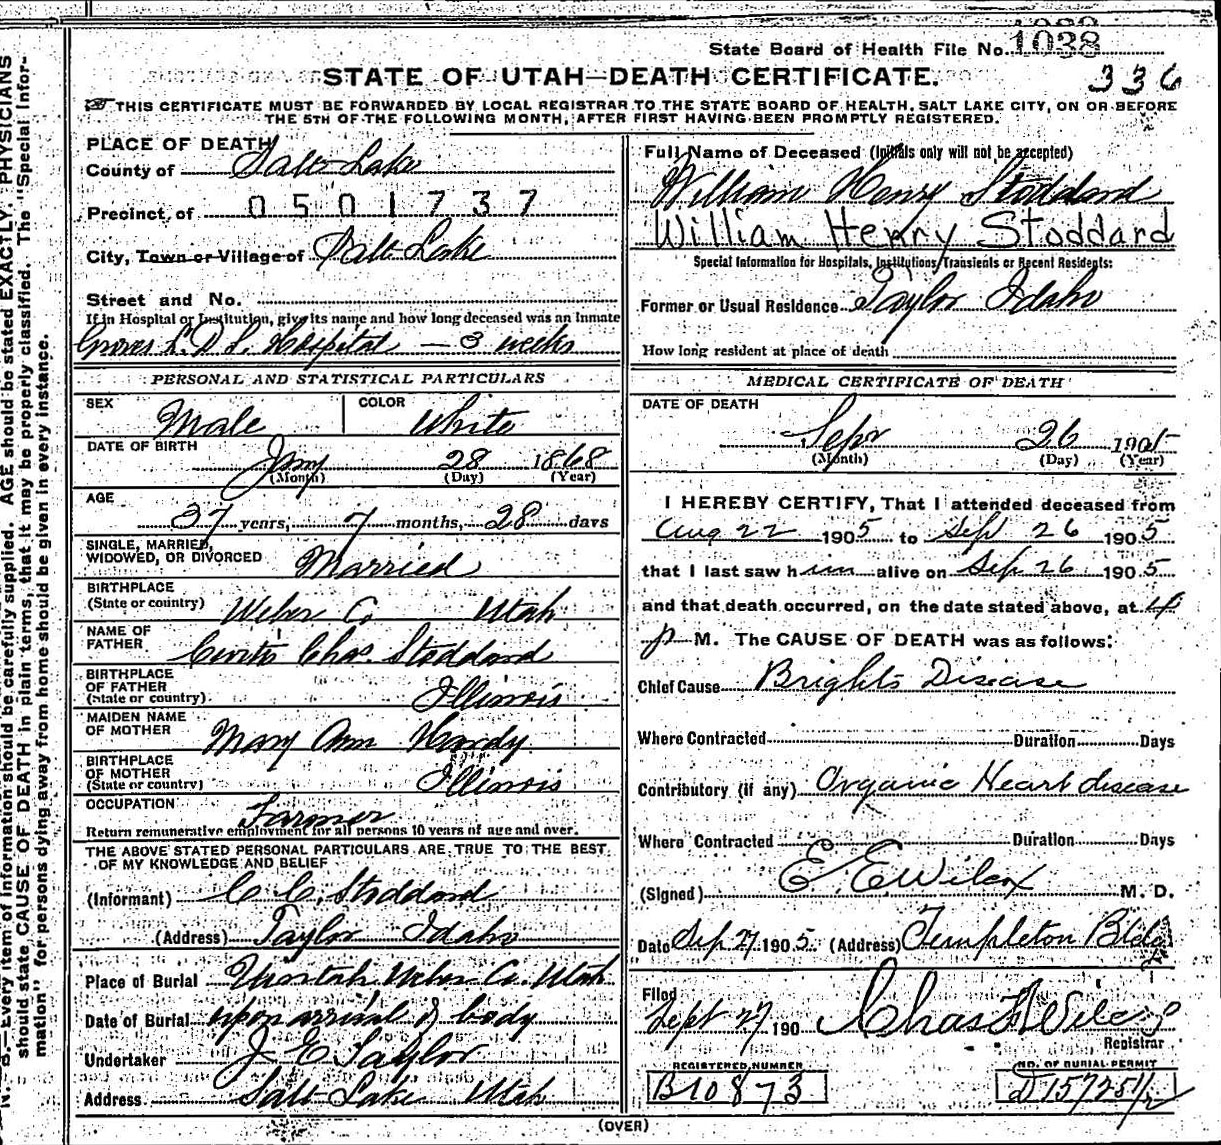 State Board of Health File No. 1038
336
STATE OF UTAH—DEATH CERTIFICATE.
THIS CERTIFICATE MUST BE FORWARDED BY LOCAL REGISTRAR TO THE STATE BOARD OF HEALTH, SALT LAKE CITY, ON OR BEFORE
THE 5TH OF THE FOLLOWING MONTH, AFTER FIRST HAVING BEEN PROMPTLY REGISTERED.
PLACE OF DEATH
County of Salt Lake
Precinct of 0501737
City, Town or Village of Salt Lake
Street and No.
If in Hospital or Institution, give its name and how long deceased was an Inmate
Groves L.D.S. Hospital — 3 weeks
PERSONAL AND STATISTICAL PARTICULARS
SEX Male COLOR White
DATE OF BIRTH
28 1868
(Month) (Day) (Year)
AGE
37 years, 7 months, 28 days
SINGLE, MARRIED,
WIDOWED, OR DIVORCED Married
BIRTHPLACE
(State or country) Weber Co Utah
NAME OF
FATHER Chas. Stoddard
BIRTHPLACE
OF FATHER
(State or country) Illinois
MAIDEN NAME
OF MOTHER Mary Ann Hardy
BIRTHPLACE
OF MOTHER
(State or country) Illinois
OCCUPATION Farmer
Return remunerative employment for all persons 10 years of age and over.
THE ABOVE STATED PERSONAL PARTICULARS ARE TRUE TO THE BEST
OF MY KNOWLEDGE AND BELIEF
(Informant) C C Stoddard
(Address) Taylor Idaho
Place of Burial Weber Co. Utah
Date of Burial upon arrival of body
Undertaker J E Taylor
Address Salt Lake Utah
Full Name of Deceased (Initials only will not be accepted)
William Henry Stoddard
William Henry Stoddard
Special Information for Hospitals, Institutions, Transients or Recent Residents:
Former or Usual Residence Taylor Idaho
How long resident at place of death
MEDICAL CERTIFICATE OF DEATH
DATE OF DEATH
Sepr 26 1905
(Month) (Day) (Year)
I HEREBY CERTIFY, That I attended deceased from
Aug 22 1905 to Sept 26 1905
that I last saw him alive on Sep 26 1905
and that death occurred, on the date stated above, at 4
p M. The CAUSE OF DEATH was as follows:
Chief Cause Brights Disease
Where Contracted Duration Days
Contributory (if any) Organic Heart disease
Where Contracted Duration Days
(Signed) E. E Wilcox M. D.
Date Sep 27 1905 (Address) Templeton Bldg
Filed
Sept 27 190
Registrar
REGISTERED NUMBER
B10873
NO. OF BURIAL PERMIT
D15725 1/2
(OVER)
N. B.—Every item of Information should be carefully supplied. AGE should be stated EXACTLY. PHYSICIANS
should state CAUSE OF DEATH in plain terms, that it may be properly classified. The "Special Infor-
mation" for persons dying away from home should be given in every instance.